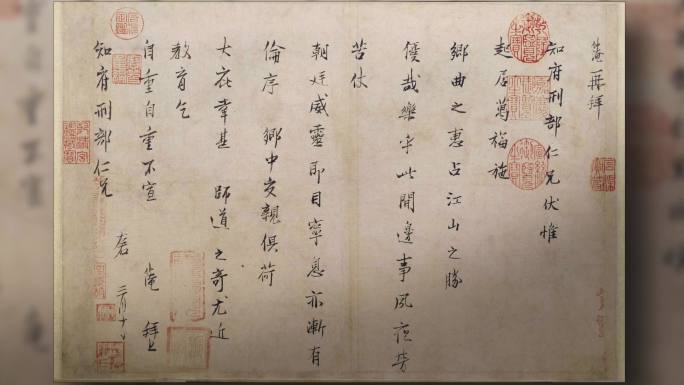 淹再拜
知府刑部仁兄伏惟
起居萬福施
鄉曲之惠占江山之勝
優哉樂乎此間邊事夙夜勞
苦仗
朝廷威靈即目寧息亦漸有
倫序鄉中交親俱荷
大庇幸甚師道之奇尤近
教育乞
自重自重不宣
淹拜上
知府刑部仁兄
左右
三月十日